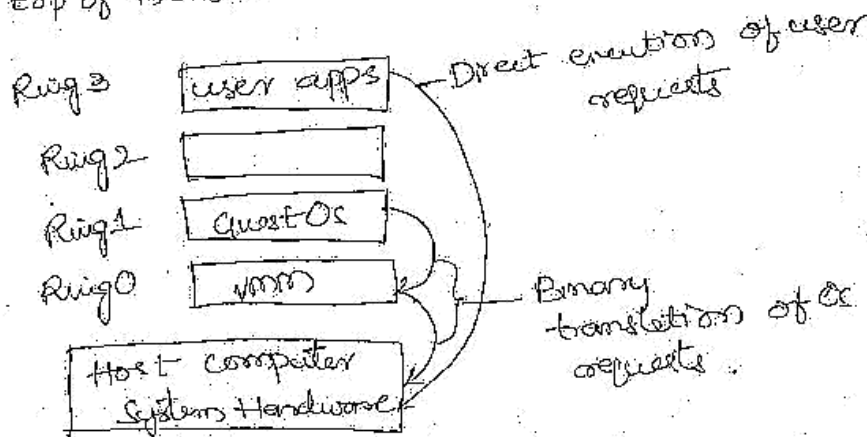 top of
Ring 3 user apps Direct execution of user
requests
Ring 2
Ring 1 Guest OS
Ring 0 VMM
Binary
translation of OS
requests.
Host computer
System Hardware